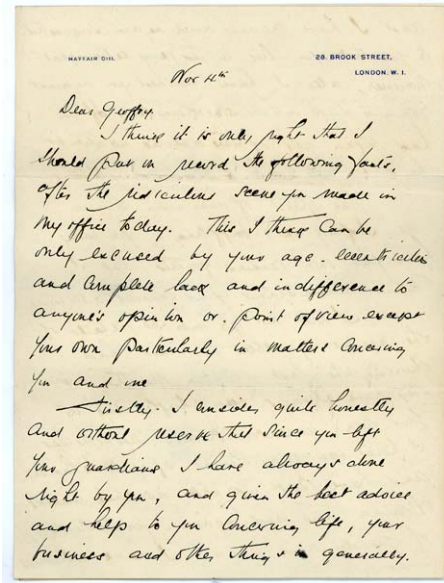 MAYFAIR 0111.
28. BROOK STREET,
LONDON. W. 1.
Nov 4th
Dear Geoffrey.
I think it is only right that I
should put on record the following facts,
after the ridiculous scene you made in
my office today. This I think can be
only excused by your age. eccentricities
and complete lack and indifference to
anyone's opinion or. point of view except
your own particularly in matters concerning
you and me
Firstly. I consider quite honestly
and without reserve that since you left
your guardians I have always done
right by you, and given the best advice
and help to you concerning life, your
business and other things in generally.